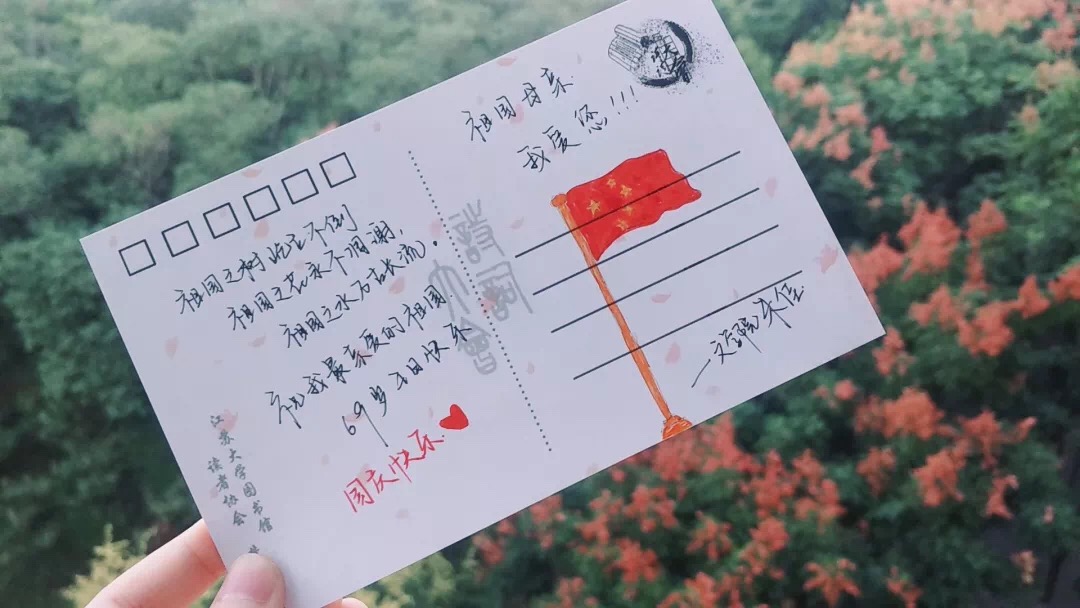 祖国之树屹立不倒
祖国之花永不凋谢，
祖国之水石古长流。
祝我最亲爱的祖国
69岁生日快乐
国庆快乐
江苏大学图书馆
读者协会
祖国母亲
我爱您!!!